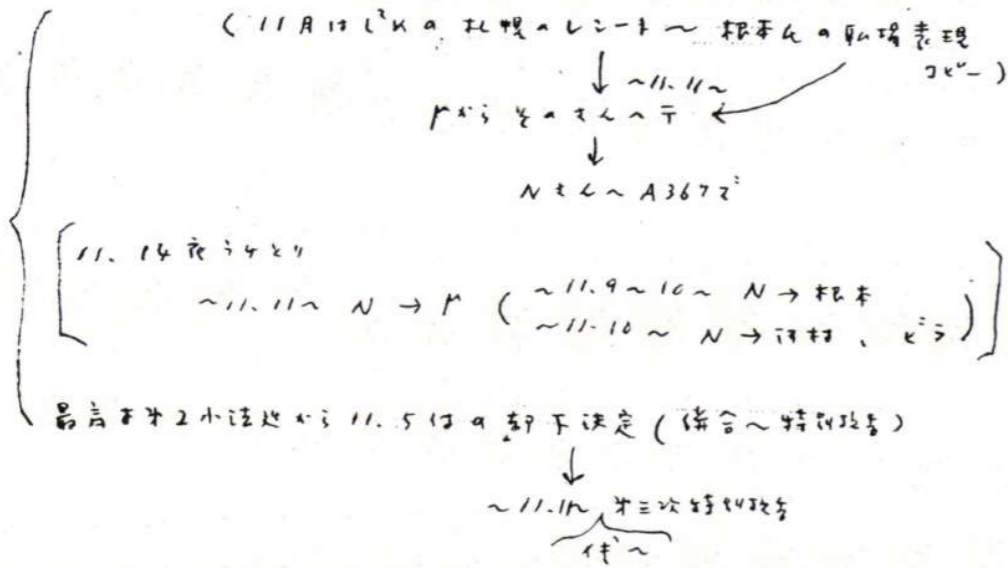 (11月は l²Kの 札幌のレシート〜 根本さんの 転場表現
コピー)
↓ 〜11.11〜
μから そのさんへ〒 ←
↓
Nさん〜A367で
11.14夜うけとり
〜11.11〜 N → μ (〜11.9〜10〜 N → 根本
〜11.10〜 N → 河村、ビラ)
最高才第2小法廷から 11.5付の却下決定(併合〜特別抗告)
↓
〜11.12 第三次特別抗告